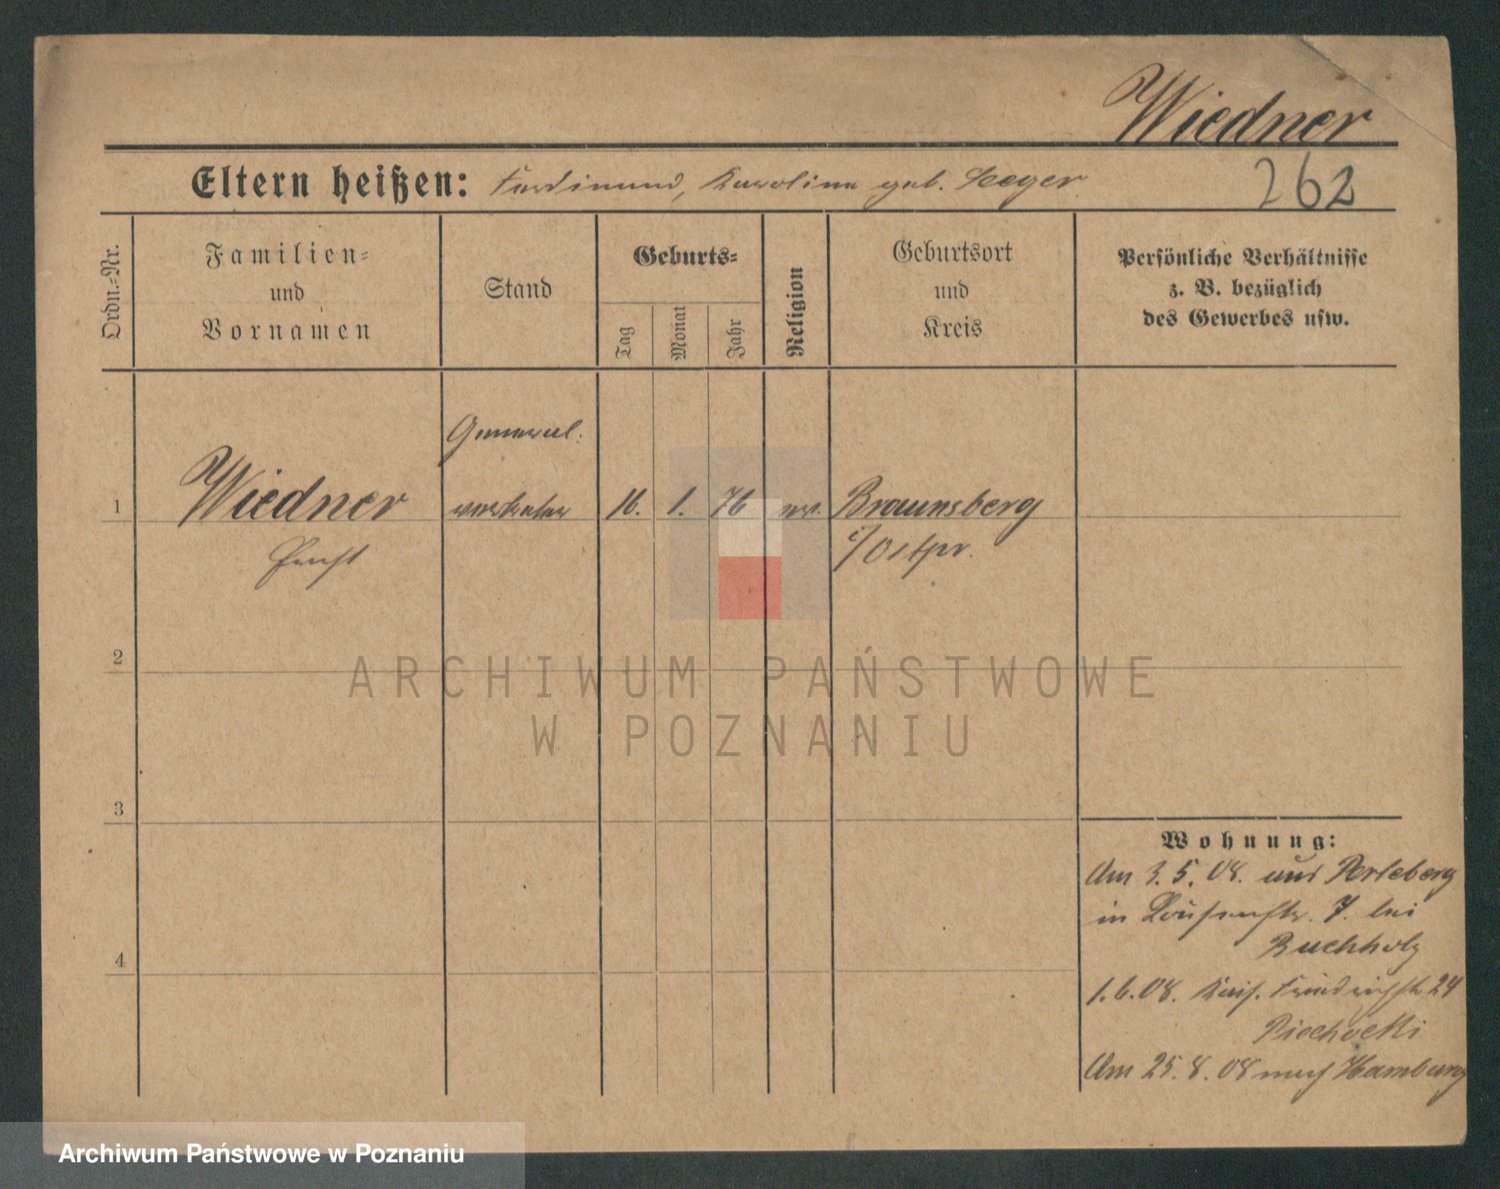 Wiedner
Eltern heißen: Ferdinand, Karoline geb. Seeger
262
Ordn.-Nr.
Familien-
und
Vornamen
Stand
Geburts-
Tag
Monat
Jahr
Religion
Geburtsort
und
Kreis
Persönliche Verhältnisse
z. B. bezüglich
des Gewerbes usw.
General.
1 Wiedner vertreter 16. 1. 76 ev. Braunsberg
Ernst i/Ostpr.
2
ARCHIWUM PAŃSTWOWE
W POZNANIU
3
Wohnung:
Am 3. 5. 08. aus Perleberg
in Louisenstr. 7. bei
Buchholz
4
1. 6. 08. Kais. Friedrichstr 24
Piechocki
Am 25. 8. 08 nach Hamburg
Archiwum Państwowe w Poznaniu